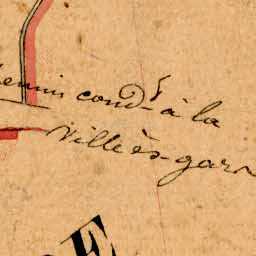 chemin condt à la
Ville ès-garn
E